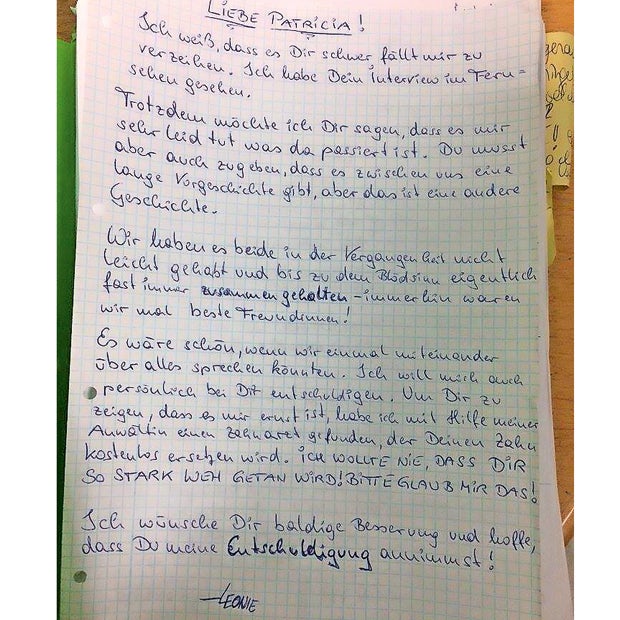 LIEBE PATRICIA!
Ich weiß, dass es Dir schwer fällt mir zu
verzeihen. Ich habe Dein Interview im Fern=
sehen gesehen.
Trotzdem möchte ich Dir sagen, dass es mir
sehr leid tut was da passiert ist. Du musst
aber auch zugeben, dass es zwischen uns eine
lange Vorgeschichte gibt, aber das ist eine andere
Geschichte.
Wir haben es beide in der Vergangenheit nicht
leicht gehabt und bis zu dem Blödsinn eigentlich
fast immer zusammengehalten - immerhin waren
wir mal beste Freundinnen!
Es wäre schön, wenn wir einmal miteinander
über alles sprechen könnten. Ich will mich auch
persönlich bei Dir entschuldigen. Um Dir zu
zeigen, dass es mir ernst ist, habe ich mit Hilfe meiner
Anwältin einen Zahnarzt gefunden, der Deinen Zahn
kostenlos ersetzen wird. ICH WOLLTE NIE, DASS DIR
SO STARK WEH GETAN WIRD! BITTE GLAUB MIR DAS!
Ich wünsche Dir baldige Besserung und hoffe,
dass Du meine Entschuldigung annimmst!
LEONIE